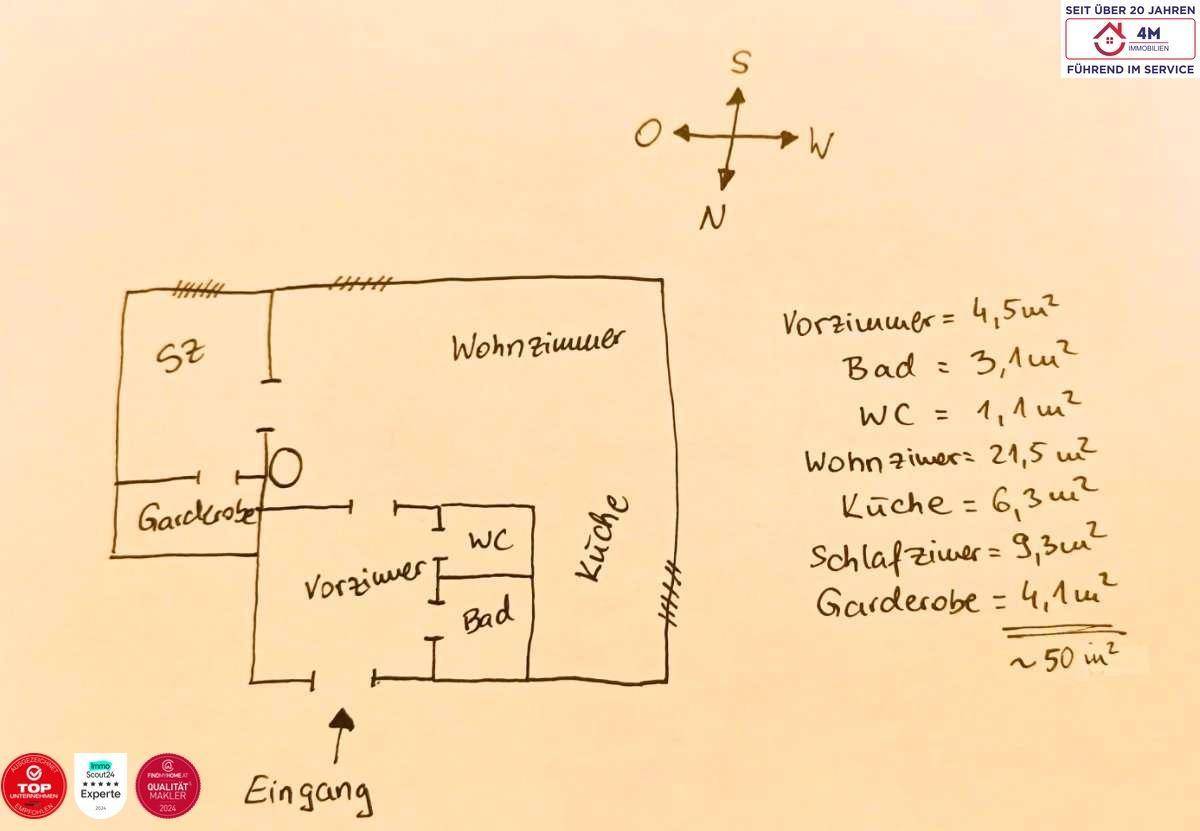 SEIT ÜBER 20 JAHREN
4M
IMMOBILIEN
FÜHREND IM SERVICE
S
O
W
N
SZ
Wohnzimmer
Garderobe
WC
Vorzimmer
Bad
Küche
Eingang
Vorzimmer = 4,5m²
Bad = 3,1m²
WC = 1,1m²
Wohnzimer = 21,5 m²
Küche = 6,3m²
Schlafzimer = 9,3m²
Garderobe = 4,1m²
~ 50 m²
AUSGEZEICHNET
TOP
UNTERNEHMEN
EMPFOHLEN
Immo
Scout24
★★★★★
Experte
2024
FINDMYHOME.AT
QUALITÄTS
MAKLER
2024